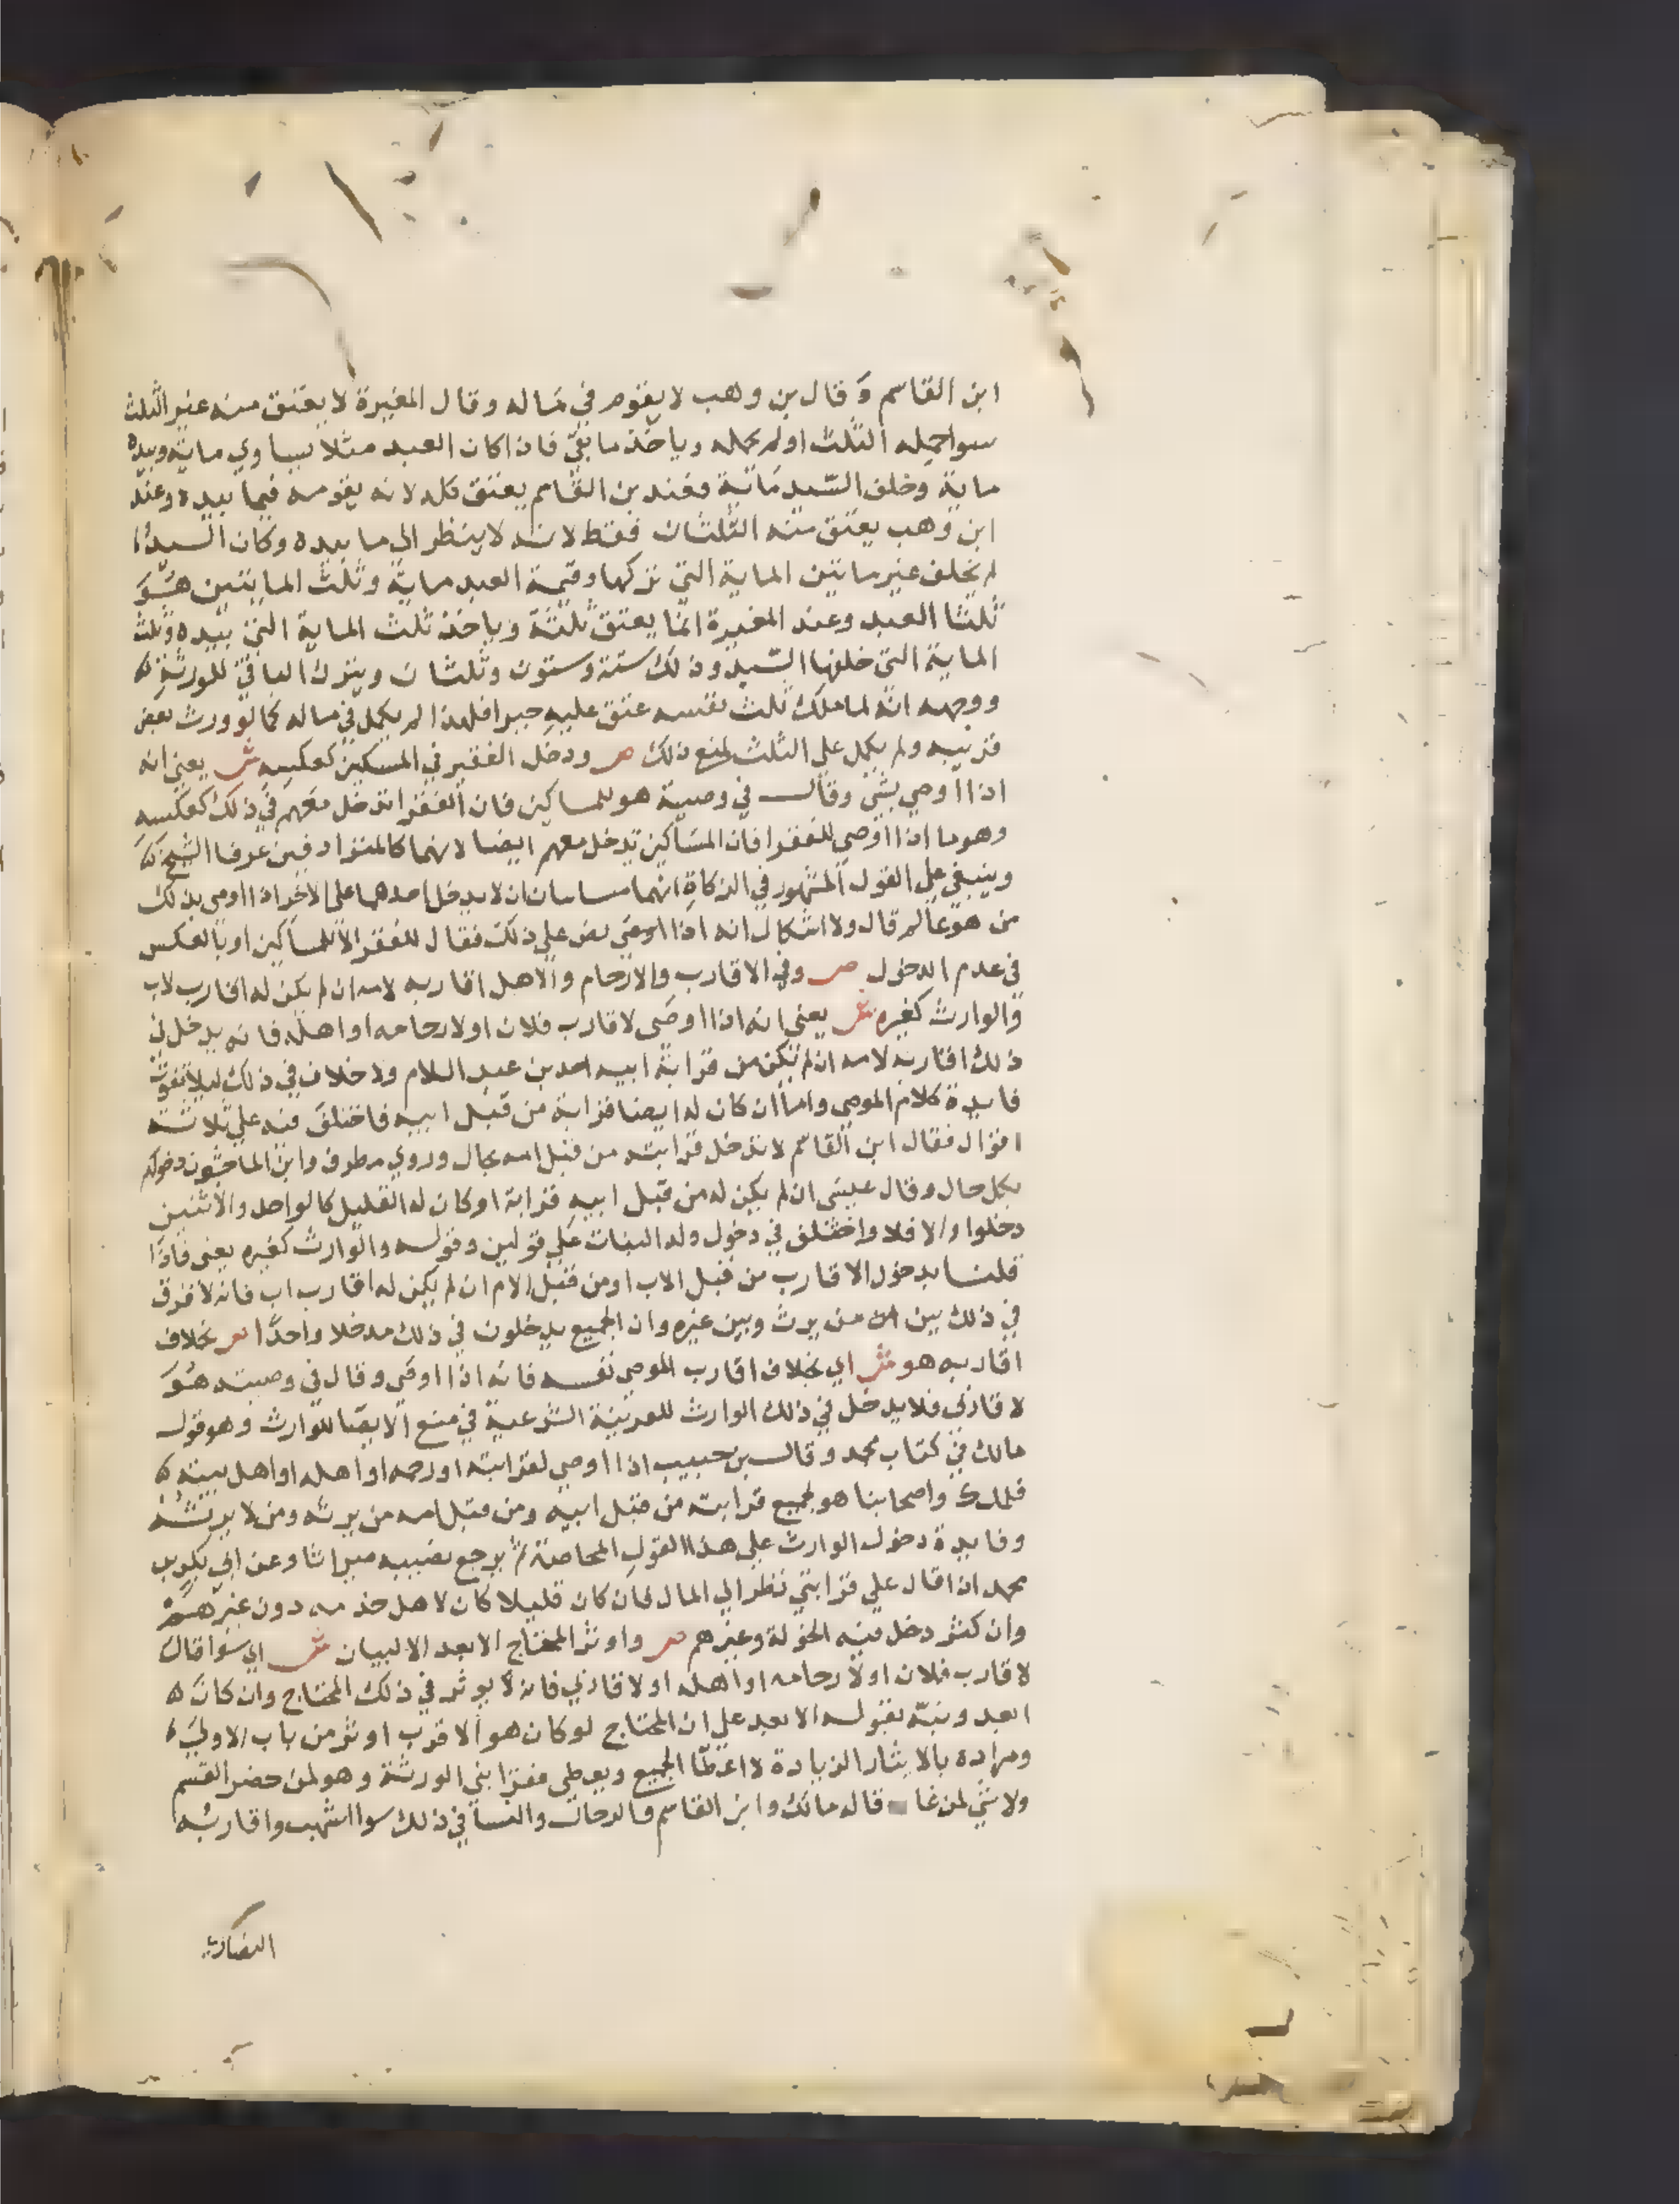 ابن القاسم وقال بن وهب لا يقوم في ماله وقال المغيرة لا يعتق منه غير الثلث
سوا حمله الثلث او لم يحمله وياخذ ما بقي فاذا كان العبد مثلا يساوي ماية وبيده
ماية وخلف السيد ماية فعند بن القاسم يعتق كله لانه يقومه فيما بيده وعند
ابن وهب يعتق منه الثلثان فقط لانه لا ينظر الي ما بيده وكان السيد
لم يخلف غير مايتين الماية التي تركها وقيمة العبد ماية وثلث المايتين هو
ثلثا العبد وعند المغيرة انما يعتق ثلثه وياخذ ثلث الماية التي بيده وثلث
الماية التي خلفها السيد وذلك ستة وستون وثلثان ويترك الباقي للورثة
ووجهه انه لما ملك ثلث نفسه عتق عليه جبرا فلهذا لم يكمل في ماله كما لو ورث بعض
قريبه ولم يكمل علي الثلث لمنع ذلك ص ودخل الفقير في المسكين كعكسه ش يعني انه
اذا اوصي بشي وقال في وصية هو للمساكين فان الفقرا تدخل معهم في ذلك كعكسه
وهو ما اذا اوصي للفقرا فان المساكين تدخل معهم ايضا لانهما كالمترادفين عرفا الشيخ
وينبغي علي القول المشهور في الزكاة انهما متباينان ان لا يدخل احدهما علي الاخر اذا اوصي بذلك
من هو عالم قال ولا اشكال انه اذا اوصي نص علي ذلك فقال للفقرا لا للمساكين او بالعكس
في عدم الدخول ص وفي الاقارب والارحام والاهل اقاربه لامه ان لم يكن له اقارب لاب
والوارث كغيره ش يعني انه اذا اوصي لاقارب فلان او لارحامه او اهله فانه يدخل في
ذلك اقاربه لامه ان لم تكن من قرابة ابيه احد بن عبد السلام ولا خلاف في ذلك ليلا تفوت
فايدة كلام الموصي واما ان كان له ايضا قرابة من قبل ابيه فاختلف فيه علي ثلاثة
اقوال فقال ابن القاسم لا تدخل قرابته من قبل امه بحال وروي مطرف وابن الماجشون دخولهم
بكل حال وقال عيسي ان لم يكن له من قبل ابيه قرابة او كان له القليل كالواحد والاثنين
دخلوا والا فلا واختلف في دخول ولد البنات علي قولين وقوله والوارث كغيره يعني فاذا
قلنا بدخول الاقارب من قبل الاب او من قبل الام ان لم يكن له اقارب اب فانه لا فرق
في ذلك بين من يرث وبين غيره وان الجميع يدخلون في ذلك مدخلا واحدا ص بخلاف
اقاربه هو ش اي بخلاف اقارب الموصي نفسه فانه اذا اوصي وقال في وصيته هو
لاقاربي فلا يدخل في ذلك الوارث للقرينة الشرعية في منع الايصا للوارث وهو قول
مالك في كتاب محمد وقال بن حبيب اذا اوصي لقرابته او رحمه او اهله او اهل بيته
فلمالك واصحابنا هو لجميع قرابته من قبل ابيه ومن قبل امه من يرثه ومن لا يرثه
وفايدة دخول الوارث علي هذا القول المحاصة ثم يرجع نصيبه ميراثا وعن ابي بكر بن
محمد اذا قال علي قرابتي نظر الي المال فان كان قليلا كان لاهل خذمه دون غيرهم
وان كثر دخل فيه الخولة وغيرهم ص واوثر المحتاج الابعد الا لبيان ش اي سوا قال
لاقارب فلان او لارحامه او اهله او لاقاربي فانه يوثر في ذلك المحتاج وان كان
ابعد ونبه بقوله الابعد علي ان المحتاج لو كان هو الاقرب اوثر من باب الاولي
ومراده بالايثار الزيادة لا اعطا الجميع ويعطي فقرا بني الورثة وهو لمن حضر القسم
ولا شي لمن غاب قاله مالك وابن القاسم فالرجال والنسا في ذلك سوا اشهب واقاربه